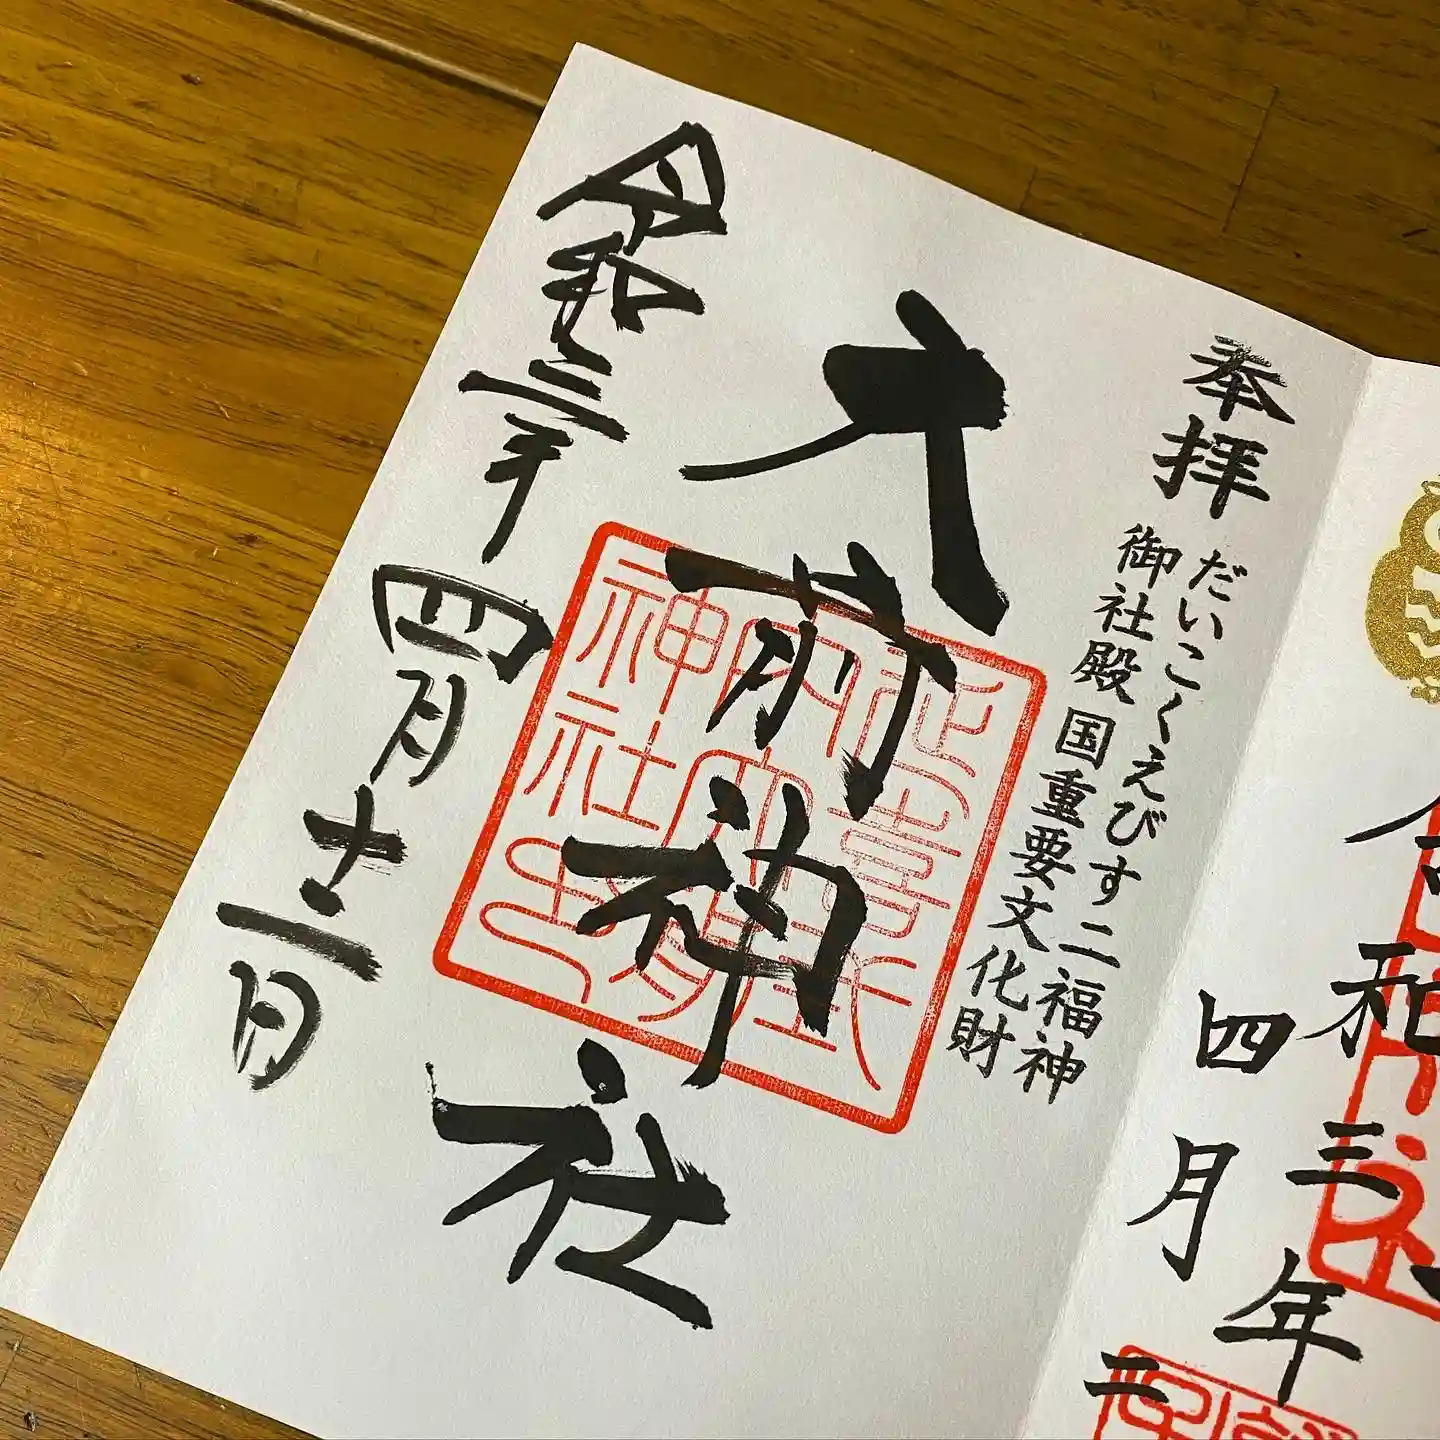 令和三年
四月二
奉拝
だいこくえびす二福神
御社殿国重要文化財
大前神社
延喜式
内大前
神社印
令和三年四月十二日